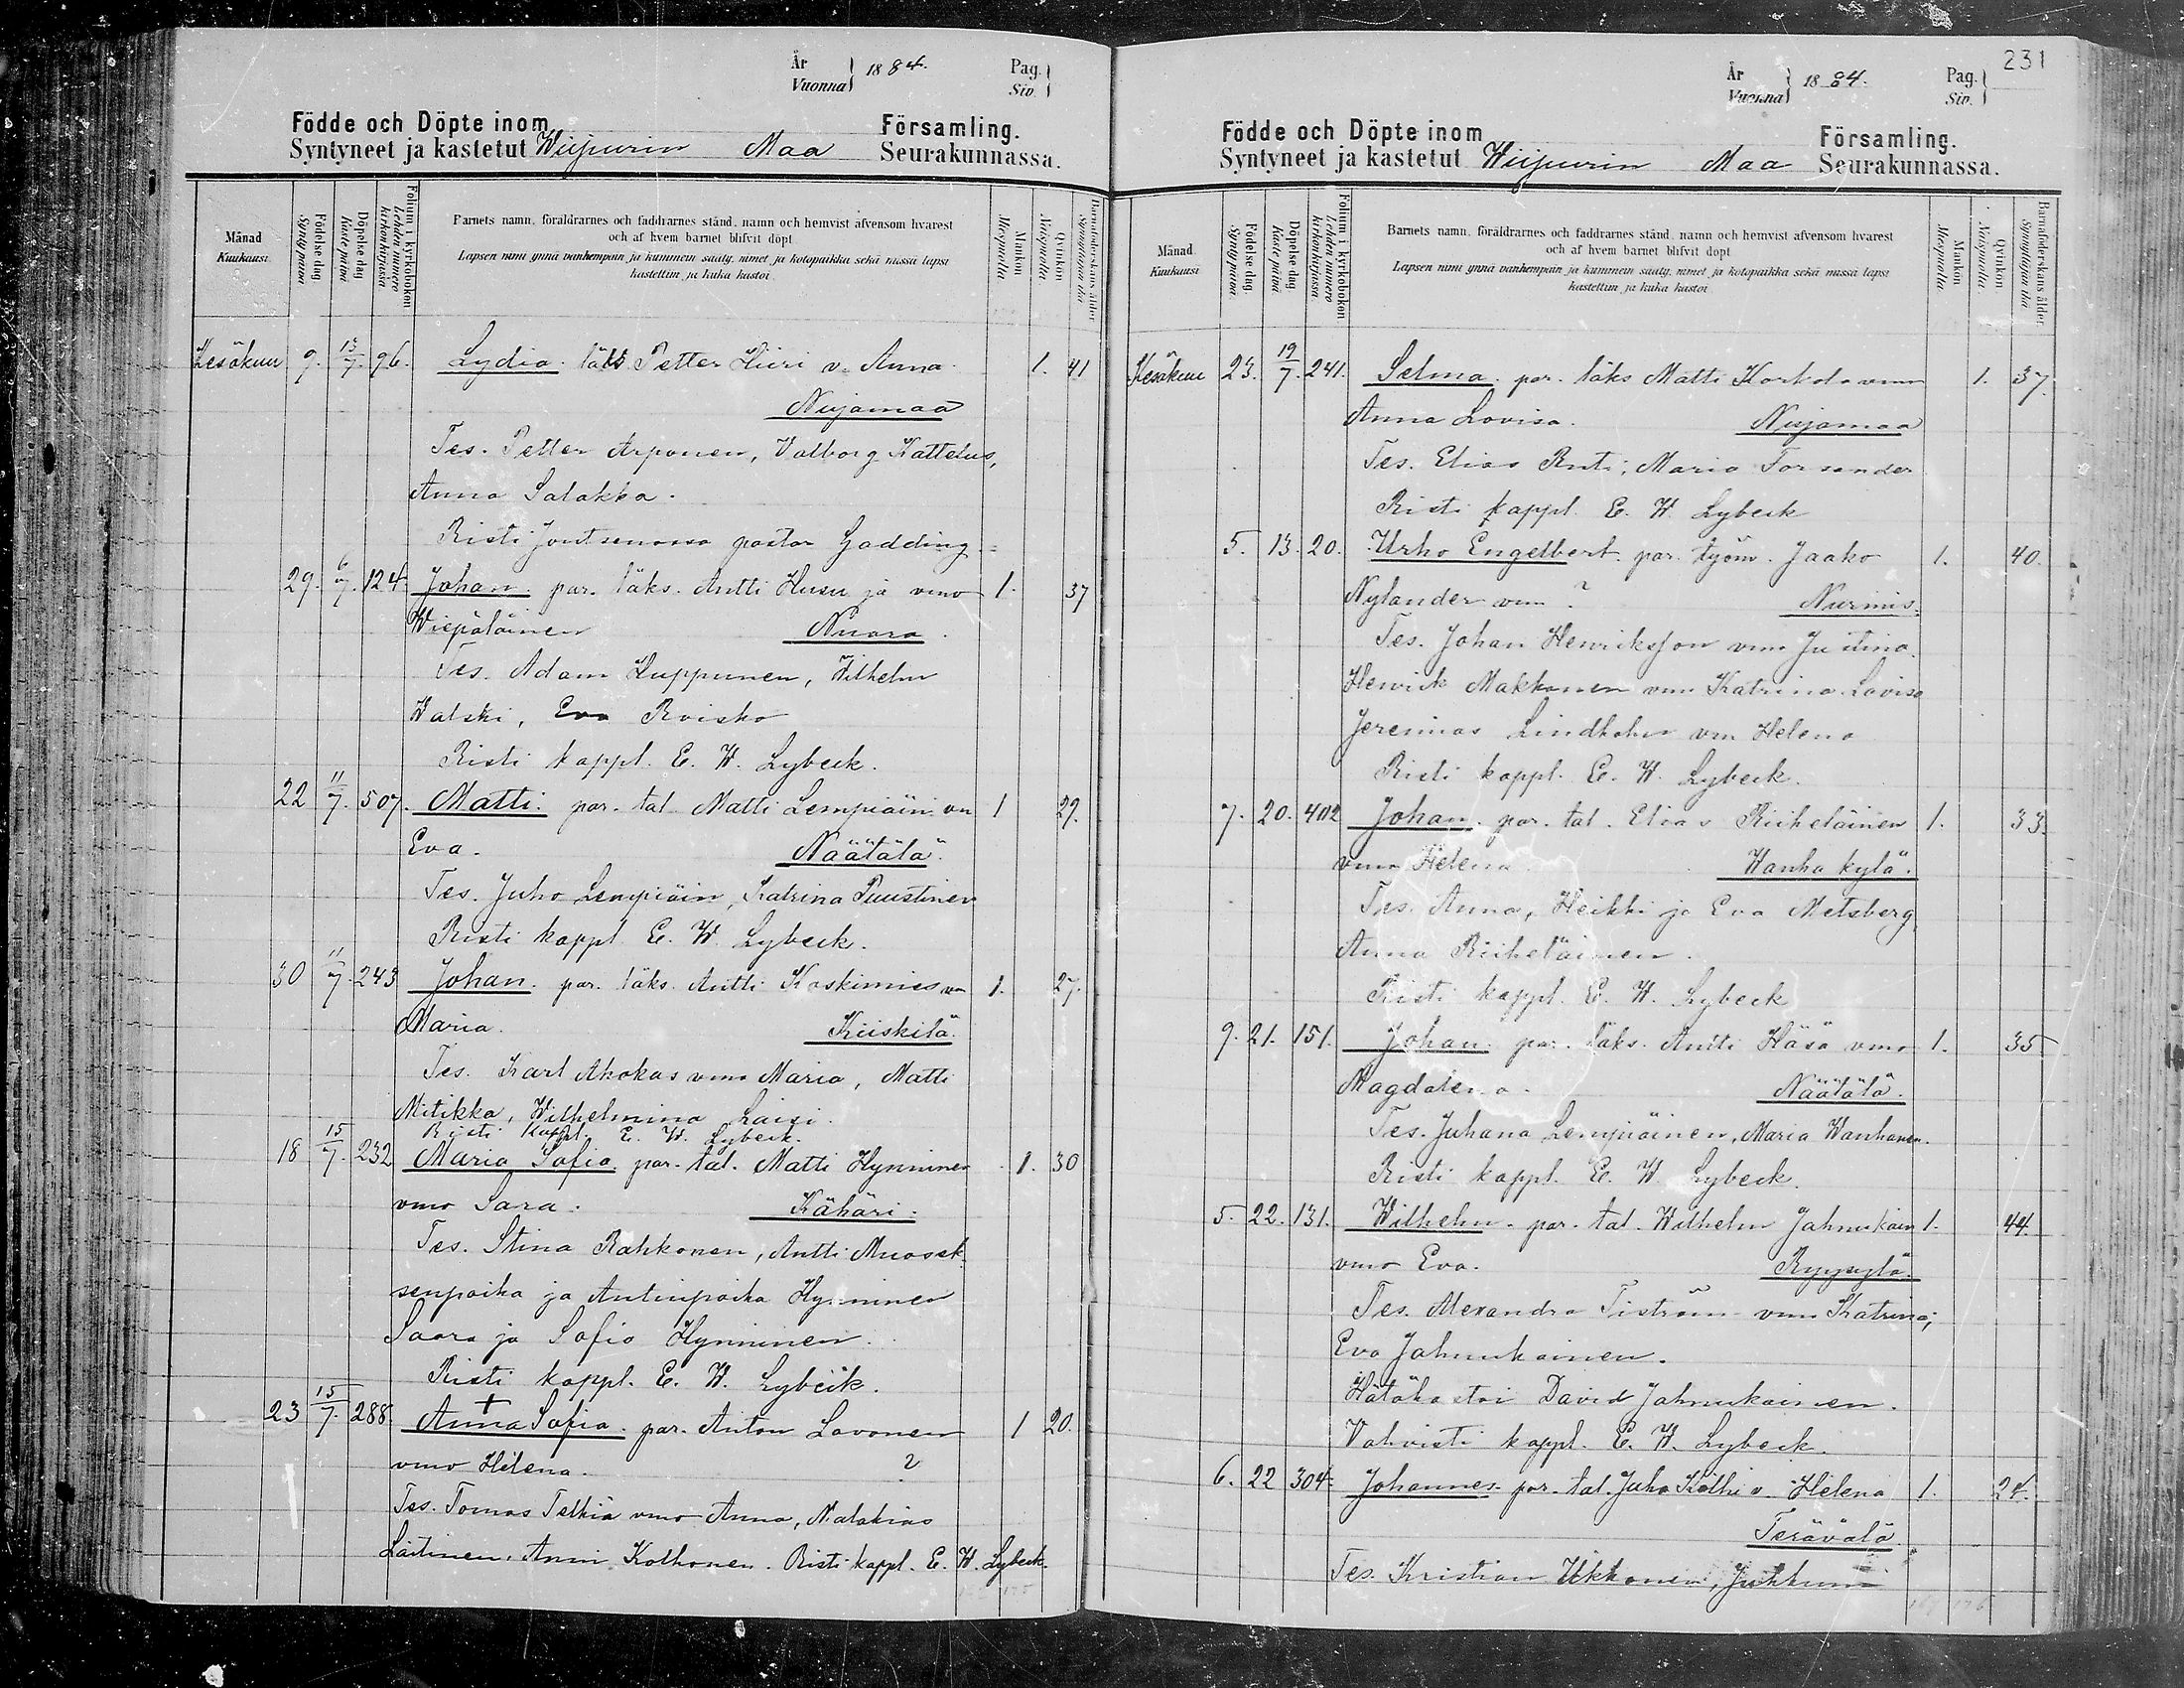 År
Vuonna } 1884. Pag.
Siv.
Födde och Döpte inom Församling.
Syntyneet ja kastetut Wiipurin Maa Seurakunnassa.
Månad
Kuukausi.
Födelse dag
Synty päivä
Döpelse dag
Kaste päivä
Folium i kyrkoboken
Lehden numero kirkonkirjassa
Barnets namn, föräldrarnes och faddrarnes stånd, namn och hemvist äfvensom hvarest
och af hvem barnet blifvit döpt.
Lapsen nimi ynnä vanhempain ja kummein sääty, nimet ja kotopaikka sekä missä lapsi
kastettiin ja kuka kastoi.
Mankön
Miespuolta.
Qvinkön
Naispuolta.
Barnaföderskans ålder
Synnyttäjän ikä
Kesäkuu 9. 13/7. 96. Lydia. läks Petter Hiiri v. Anna. 1. 41
Nuijamaa
Tes. Petter Arponen, Valborg Kattelus,
Anna Salakka.
Risti Joutsenossa pastor Gadding.
29. 6/7. 124. Johan par. läks. Antti Husu ja vmo 1. 37
Wiepäläinen Nuora.
Tes. Adam Huppunen, Wilhelm
Watski, Eva Roisko
Risti kappl. E. W. Lybeck.
22 11/7. 507. Matti. par. tal. Matti Lempiäin. vm 1 29.
Eva. Näätälä.
Tes. Juho Lempiäin, Katrina Puustinen
Risti kappl E. W. Lybeck.
30 11/7. 243 Johan. par. läks. Antti Koskimies vm 1. 27.
Maria. Kiiskilä.
Tes. Karl Ahokas vmo Maria, Matti
Mitikka, Wilhelmina Laisi.
Risti kappl. E. W. Lybeck.
18 15/7. 232 Maria Sofia. par. tal. Matti Hynninen 1. 30
vmo Sara. Kähäri.
Tes. Stina Rahkonen, Antti
senpoika ja Antinpoika Hynninen
Saara ja Sofia Hynninen.
Risti kappl. E. W. Lybeck.
23 15/7. 288. + Anna Sofia. par. Anton Lavonen 1 20.
vmo Helena. ?
Tes. Tomas Telkiä vmo Anna, Malakias
Laitinen, Anni Kolhonen. Risti kappl. E. W. Lybeck.
231
År
Vuonna } 1884. Pag.
Siv.
Födde och Döpte inom Församling.
Syntyneet ja kastetut Wiipurin Maa Seurakunnassa.
Månad
Kuukausi
Födelse dag.
Synty päivä
Döpelse dag.
Kaste päivä
Folium i kyrkoboken
Lehden numero kirkonkirjassa
Barnets namn, föräldrarnes och faddrarnes stånd, namn och hemvist äfvensom hvarest
och af hvem barnet blifvit döpt
Lapsen nimi ynnä vanhempain ja kummein sääty, nimet ja kotopaikka sekä missä lapsi
kastettiin ja kuka kastoi
Mankön
Miespuolta
Qvinkön
Naispuolta.
Barnaföderskans ålder
Synnyttäjän ikä
Kesäkuu 23. 19/7. 241. Selma. par. läks Matti Korkola vmo 1. 37.
Anna Lovisa. Nuijamaa
Tes. Elias Ruti, Maria Forsander
Risti kappl. E. W. Lybeck
5. 13. 20. Urho Engelbert. par. työm. Jaako 1. 40.
Nylander vmo ? Nurmis.
Tes. Johan Henriksson vmo Justina
Henrick Makkonen vmo Katrina Lovisa
Jeremias Lindholm vm Helena
Risti kappl. E. W. Lybeck.
7. 20. 402 Johan. par. tal. Elias Riiheläinen 1. 33.
vmo Helena. Wanha kylä.
Tes. Anna, Heikki ja Eva Metsberg
Anna Riiheläinen.
Risti kappl. E. W. Lybeck
9. 21. 151. Johan. par. läks. Antti Häsä vmo 1. 35
Magdalena. Näätälä.
Tes. Juhana Lempiäinen, Maria Wanhanen.
Risti kappl. E. W. Lybeck.
5. 22. 131. Wilhelm. par. tal. Wilhelm Jahnukain 1. 44.
vmo Eva. Ryysylä.
Tes. Alexandra Tiström vmo Katrina,
Eva Jahnukainen.
Hätäkastoi David Jahnukainen.
Vahvisti kappl. E. W. Lybeck.
6. 22 304. Johannes. par. tal. Juho Kälhi v. Helena 1. 24.
Terävälä.
Tes. Kristian Ukkonen,